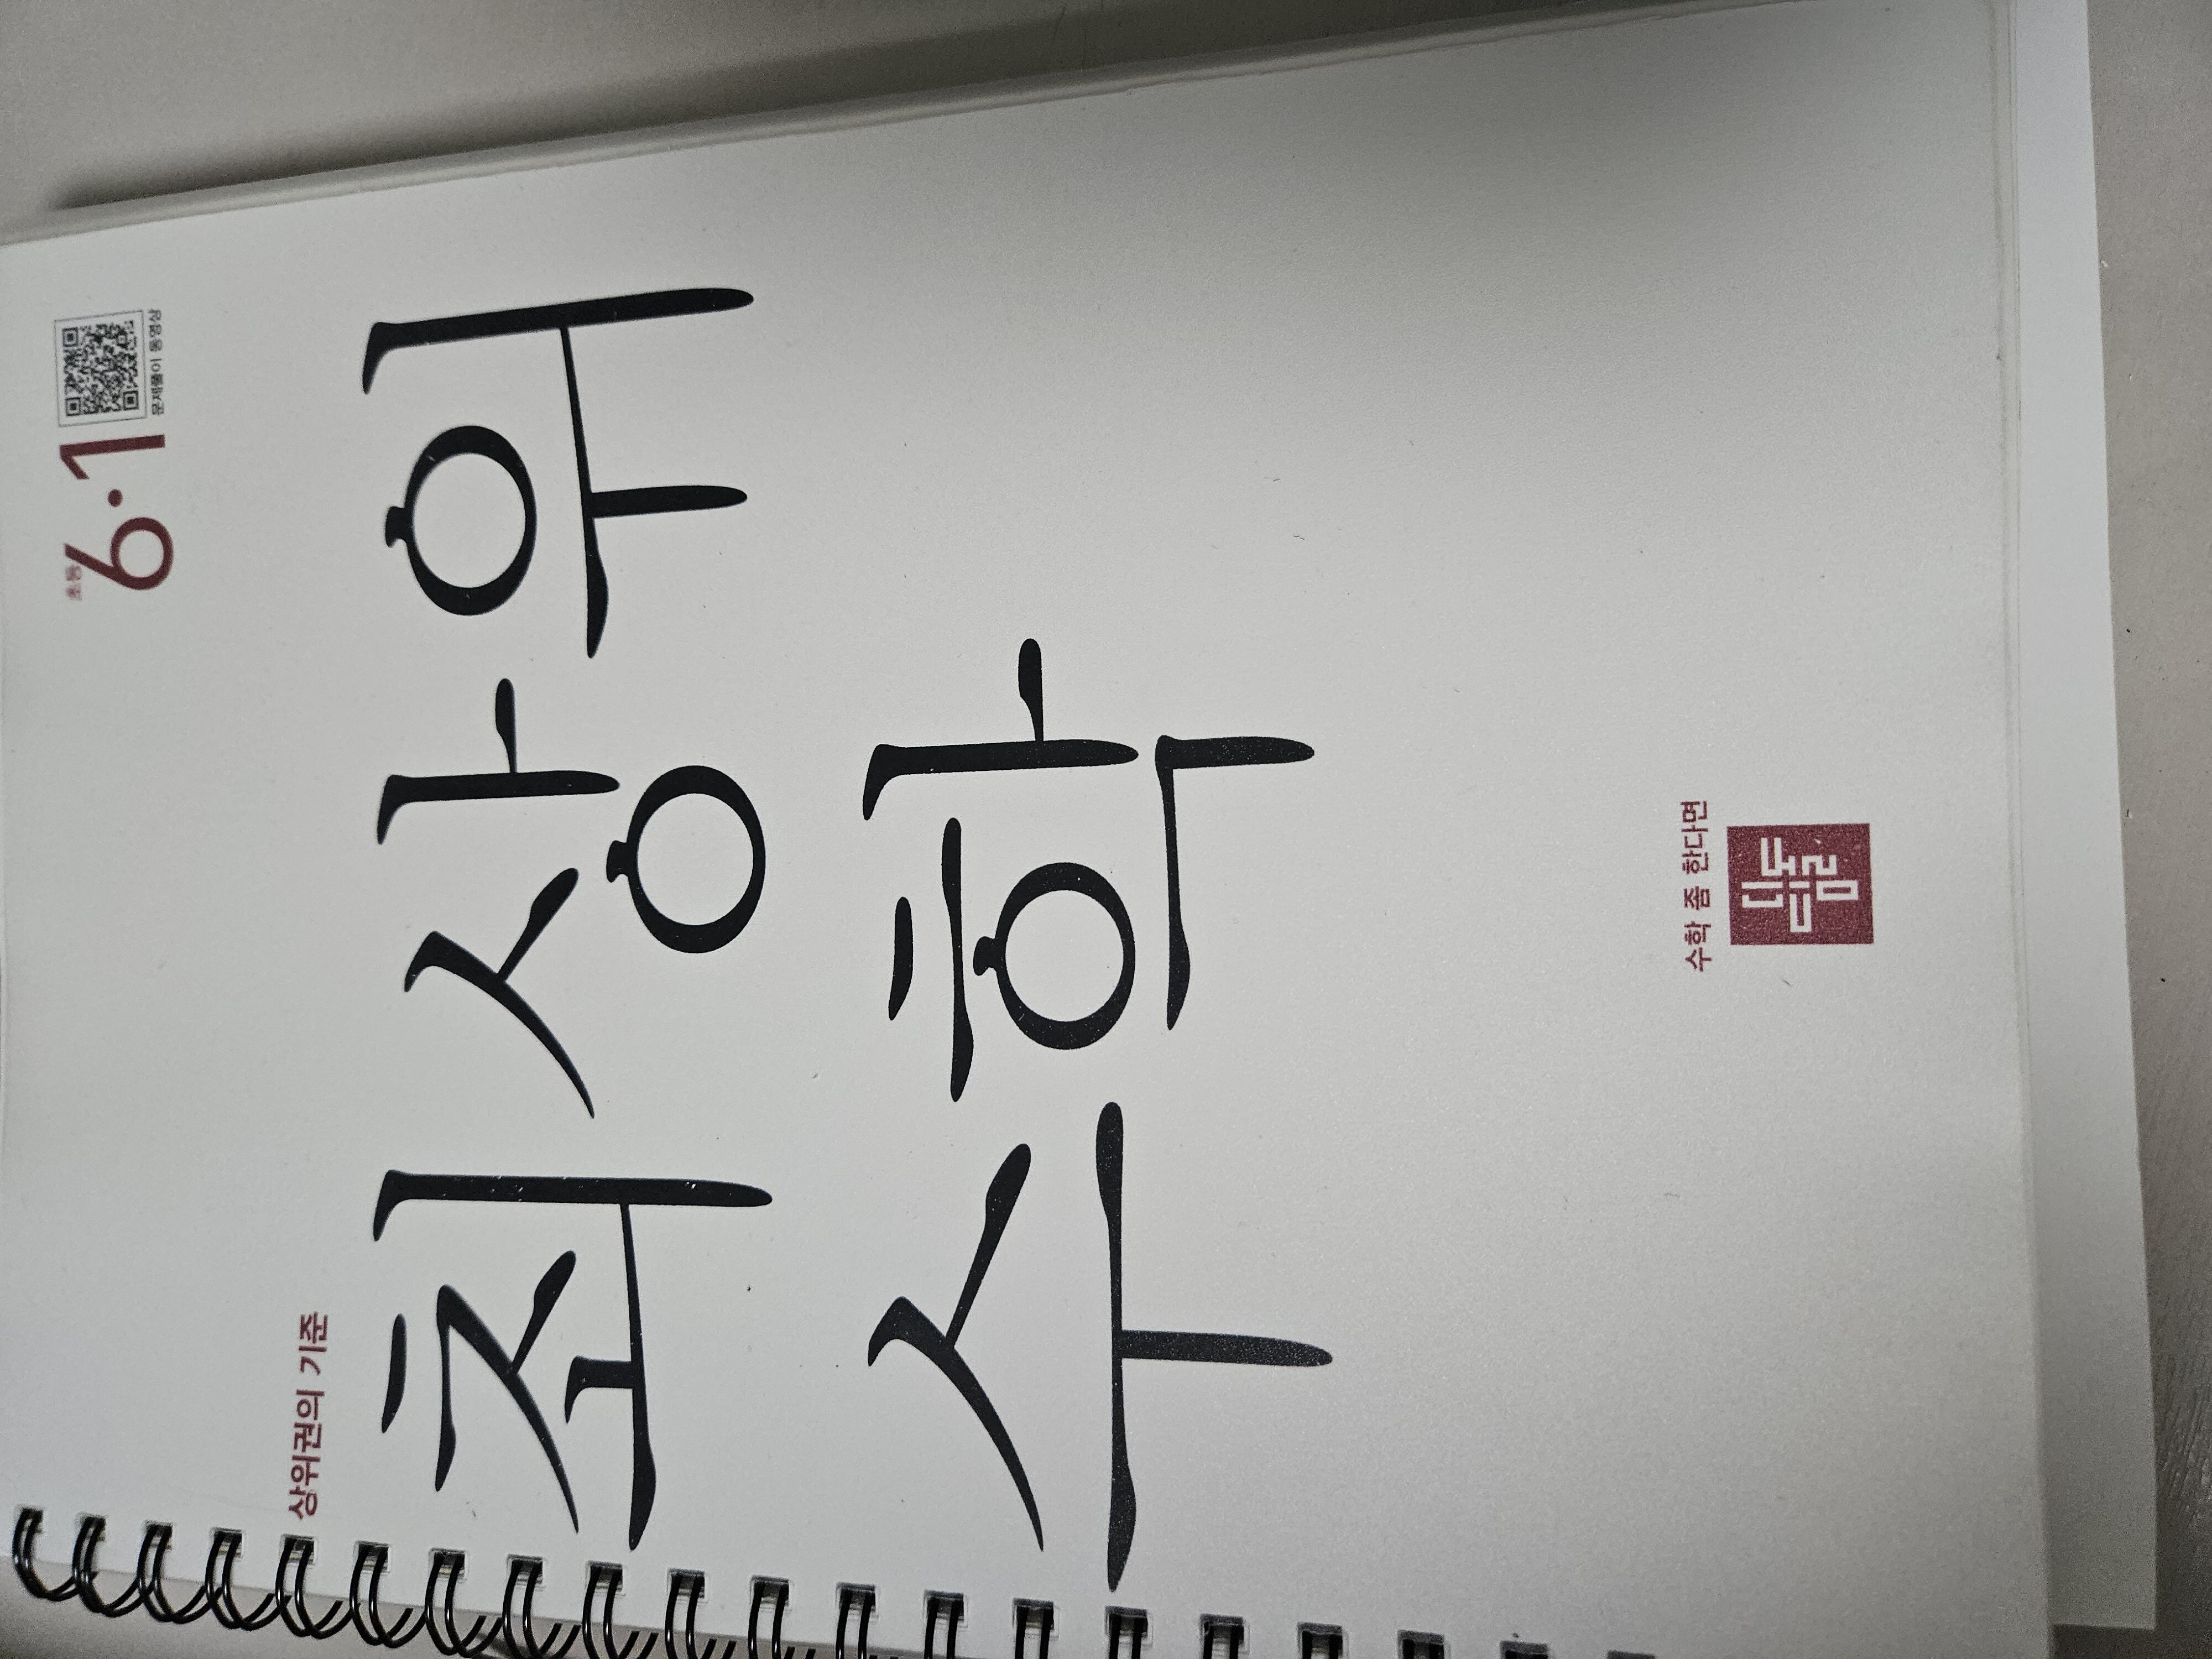 초등
6·1
문제풀이 동영상
상위권의 기준
최상위
수학
수학 좀 한다면
디딤돌